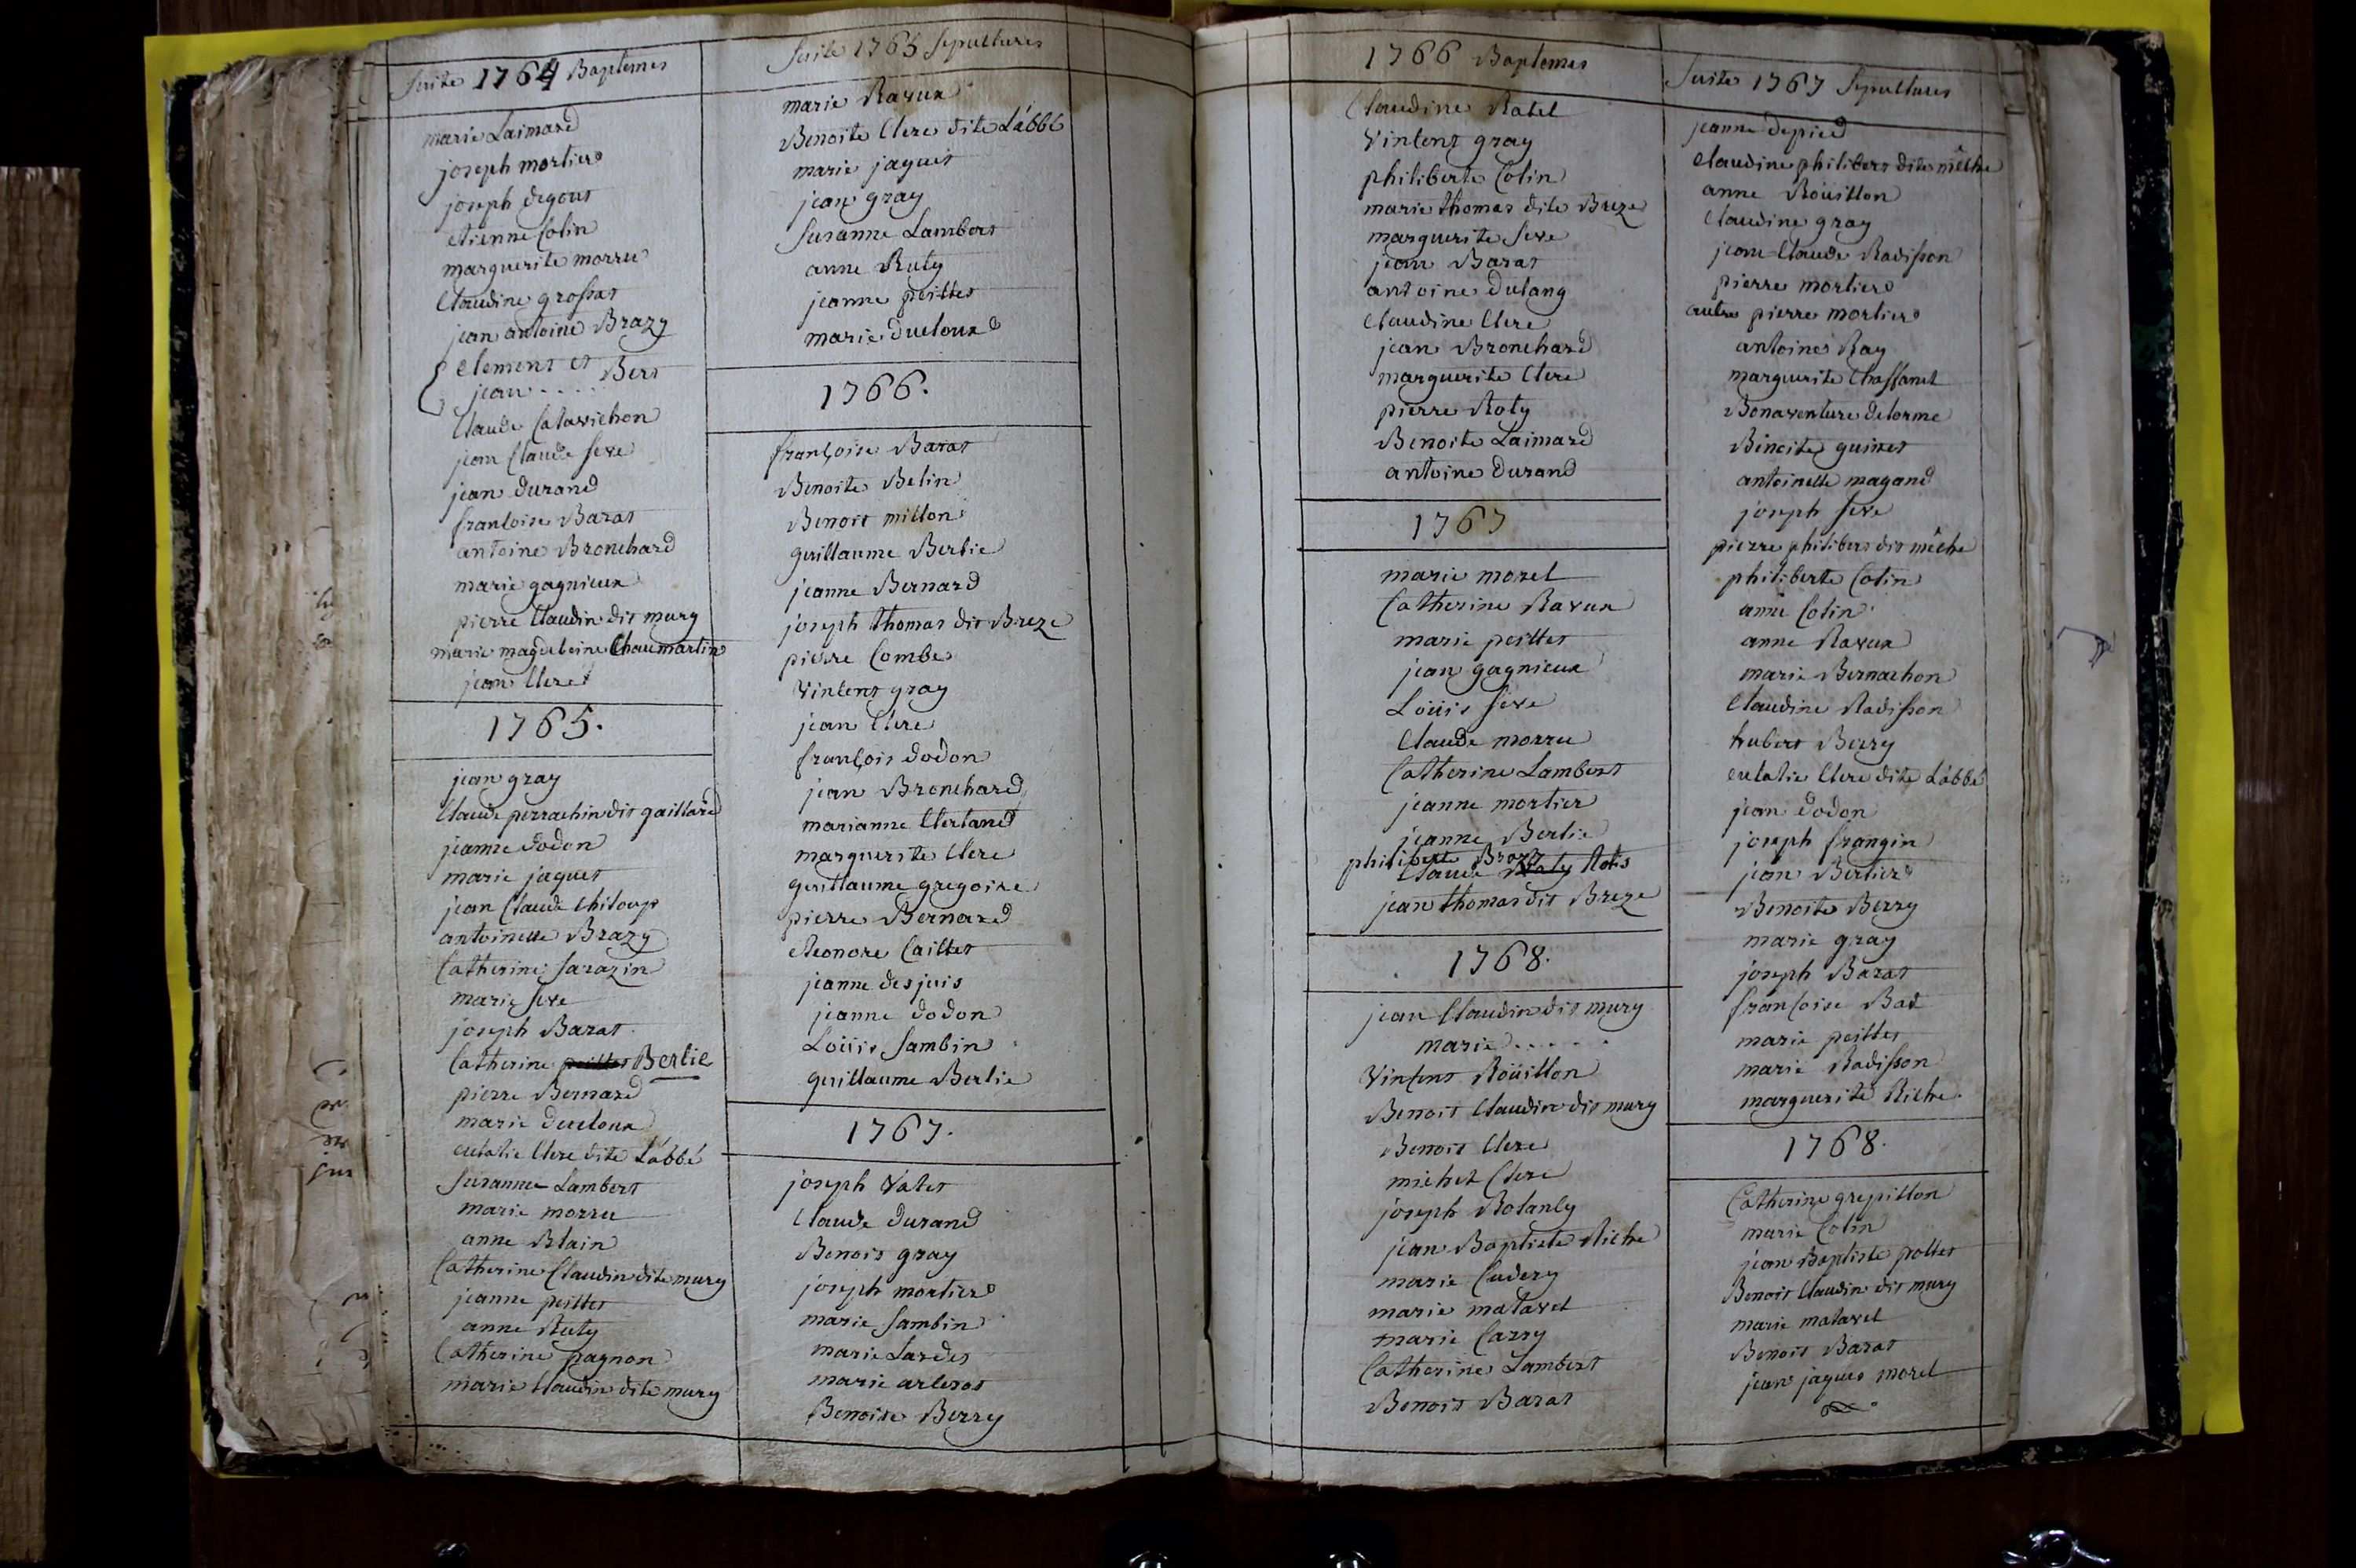 Suite 1764 Baptemes
marie Laimard
joseph mortier
joseph degout
etienne Colin
marguerite morru
Claudine grossat
jean antoine Brazy
Clement et
jean .... Bert
Claude Catavichon
jean Claude seve
jean durand
francoise Barat
antoine Bronchard
marie gagnieux
pierre Claudin dit mury
marie magdeleine Chaumartin
jean Clere
1765.
jean gray
Claude perrachin dit gaillard
jeanne dodon
marie jaquet
jean Claude Chiloup
antoinette Brazy
Catherine sarazin
marie seve
joseph Barat
Catherine peillet Berlie
pierre Bernard
marie ducloux
eulalie Clere dite Labbé
susanne Lambert
marie morru
anne Blain
Catherine Claudin dite mury
jeanne peillet
anne Ruty
Catherine pagnon
marie Claudin dite mury
Suite 1765 Sepultures
marie Ravux
Benoite Clere dite Labbé
marie jaquet
jean gray
susanne Lambert
anne Ruty
jeanne peillet
marie ducloux
1766.
françoise Barat
Benoite Belin
Benoit millon
guillaume Berlie
jeanne Bernard
joseph thomas dit Breze
pierre Combe
Vincent gray
jean Clere
françois dodon
jean Bronchard
marianne Clerland
marguerite Clere
guillaume gregoire
pierre Bernard
eleonore Caillet
jeanne desjuis
jeanne dodon
Loüis sambin
guillaume Berlie
1767.
joseph Valet
Claude durand
Benoit gray
joseph mortier
marie sambin
marie Lardet
marie arlerat
Benoite Berry
1766 Baptemes
Claudine Ratel
Vincent gray
philiberte Colin
marie thomas dite Breze
marguerite seve
jean Barat
antoine dulang
Claudine Clere
jean Bronchard
marguerite Clere
pierre Roty
Benoite Laimard
antoine durand
1767
marie morel
Catherine Ravux
marie peillet
jean gagnieux
Loüis seve
Claude morru
Catherine Lambert
jeanne mortier
jeanne Berlie
philiberte Brazy
Claude
jean thomas dit Breze
1768.
jean Claudin dit mury
marie ......
Vincent Roüillon
Benoit Claudin dit mury
Benoit Clere
michel Clere
joseph Rolanly
jean Baptiste Riche
marie Cudery
marie matavel
marie Carry
Catherine Lambert
Benoit Barat
Suite 1767 Sepultures
jeanne depied
Claudine philibert dite mêche
anne Roüillon
Claudine gray
jean Claude Radisson
pierre mortier
autre pierre mortier
antoine Ray
marguerite Chassanel
Bonaventure delorme
Benoite guinet
antoinette magand
joseph seve
pierre philibert dit mêche
philiberte Colin
anne Colin
anne Ravux
marie Bernachon
Claudine Radisson
hubert Berry
eulalie Clere dite Labbé
jean dodon
joseph frangin
jean Bertier
Benoite Berry
marie gray
joseph Barat
francoise Bad
marie peillet
marie Radisson
marguerite Riche.
1768.
Catherine grepillon
marie Colin
jean Baptiste pollet
Benoit Claudin dit mury
marie matavel
Benoit Barat
jean jaques morel